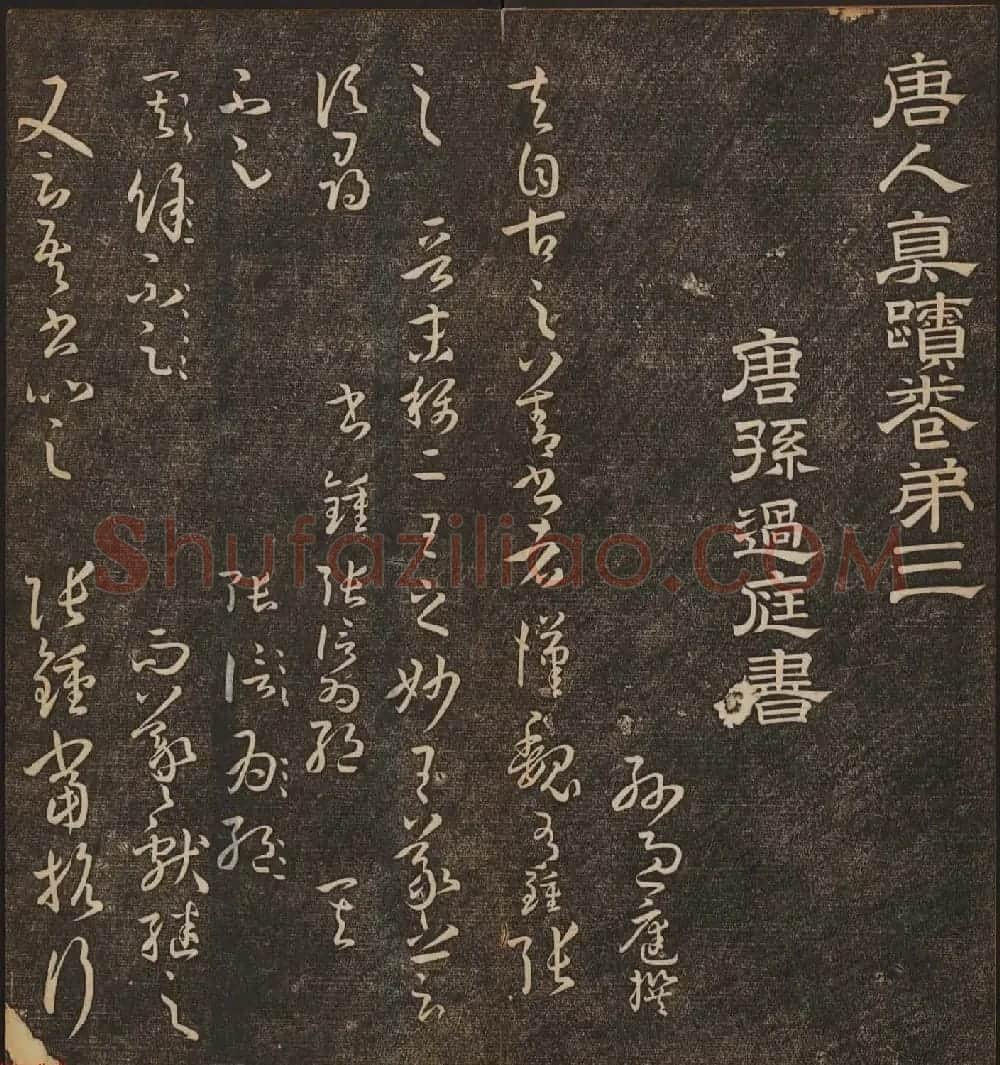 唐人真蹟卷弟三
唐孫過庭書
孫過庭撰
夫自古之善書者漢魏有鍾張
之 晉末稱二王之妙王羲之云
頃尋諸 書 鍾張信為絕 其
不足 張信為絕
其餘不足 而羲獻繼之
又云吾書比之 張鍾當抗行
Shufaziliao.COM